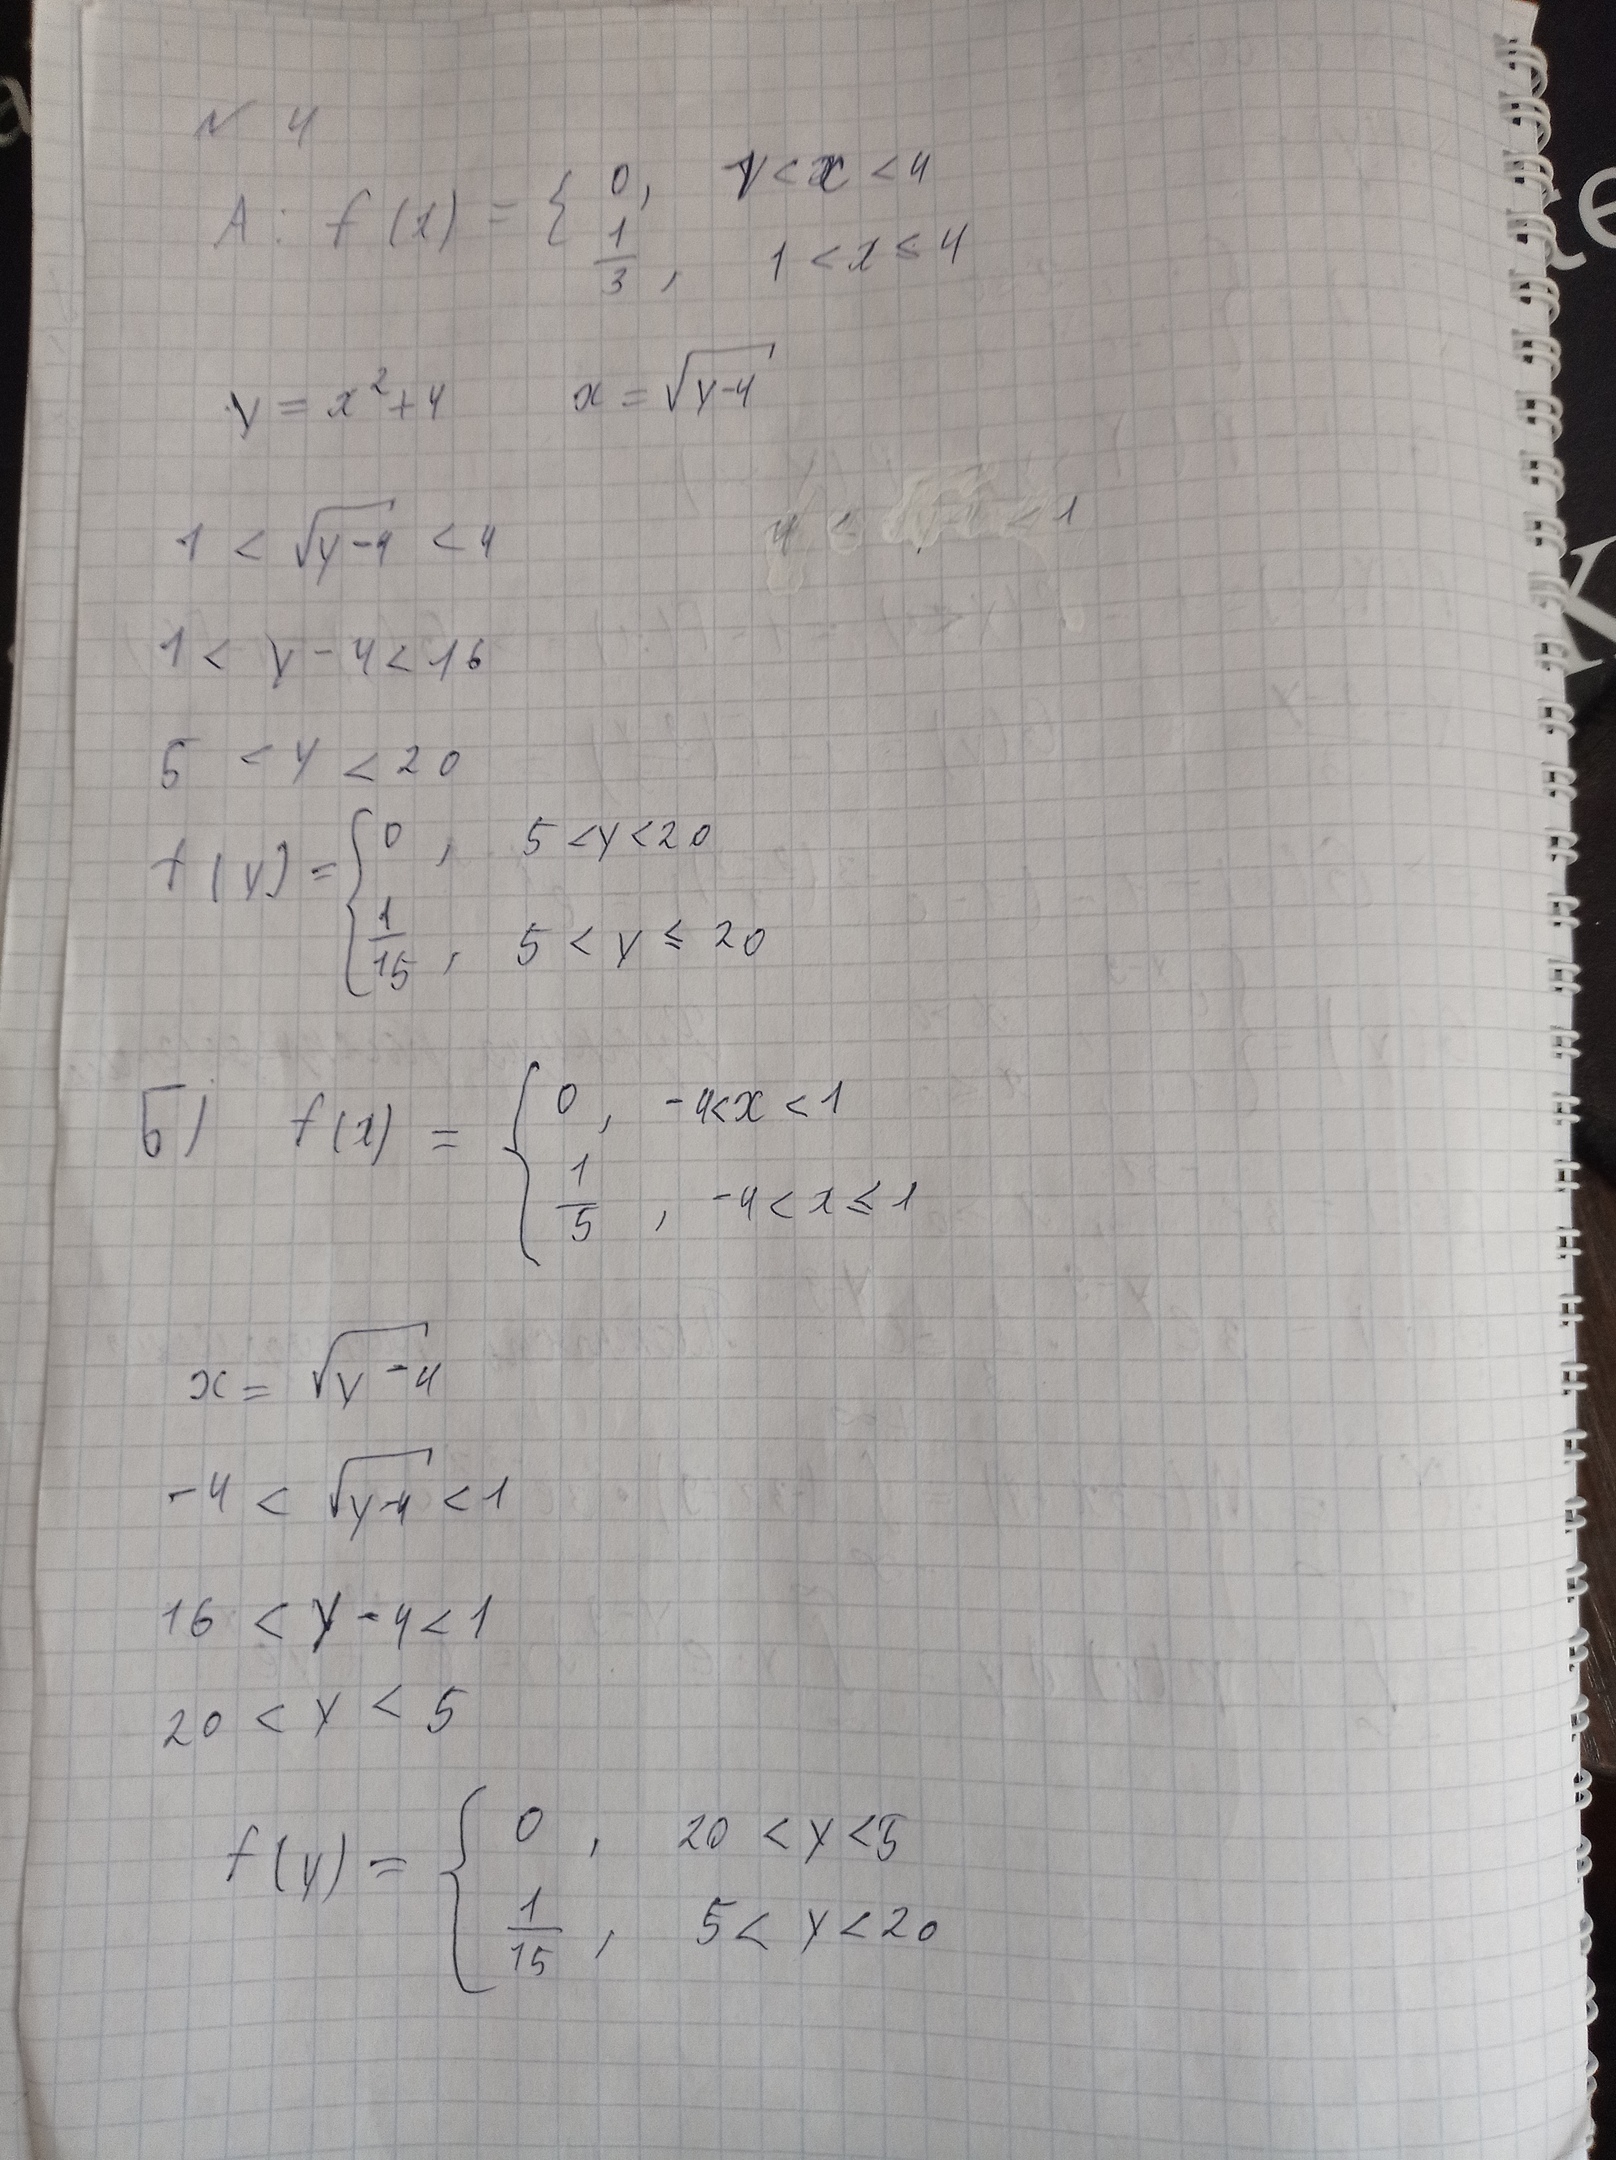 № 4
А: f(x) = { 0, 1 < x < 4
1/3, 1 < x ≤ 4
y = x² + 4 x = √(y-4)
1 < √(y-4) < 4
4 < < 1
1 < y - 4 < 16
5 < y < 20
f(y) = { 0, 5 < y < 20
1/15, 5 < y ≤ 20
Б) f(x) = { 0, -4 < x < 1
1/5, -4 < x ≤ 1
x = √(y-4)
-4 < √(y-4) < 1
16 < y - 4 < 1
20 < y < 5
f(y) = { 0, 20 < y < 5
1/15, 5 < y < 20